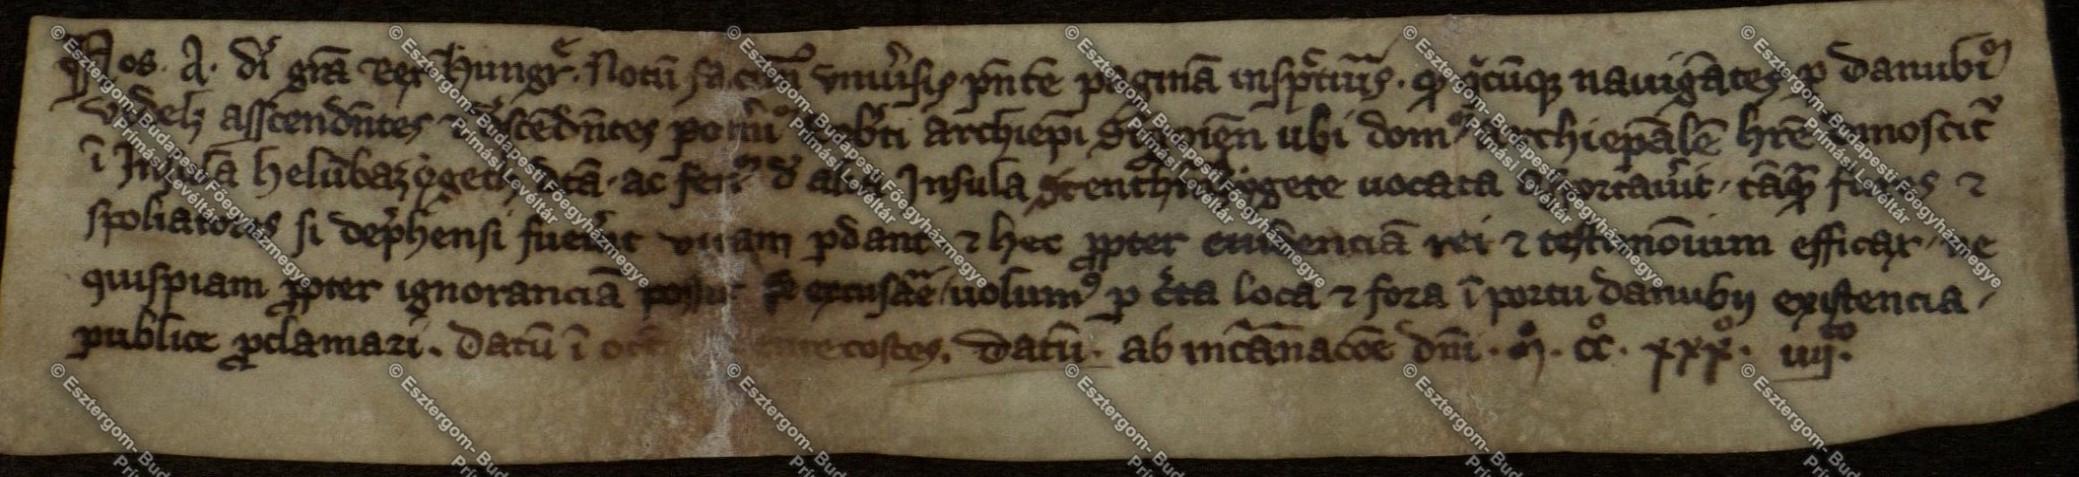 Nos. A. di gra Rex hungr. Notu facim᷒ vniu͛sis p̄nte paginā insp̄cturis. q̇ q̇cūq; nauigātes ꝑ danubiū
asscendn̄tes ⁊ descēdn̄tes Rob̄ti archiep̄i Strigoniēn ubi dom᷒ archiep̄alē hr̄e dinoscit᷑
ī Insulā helūbaz dc̄ā. ac fenū d̄ alia Insula uocata asportau͛int. tāq̄ fures ⁊
spoliatores si dep̄hensi fuerīt vitam ꝑdant ⁊ hec ꝓpter euidenciā rei ⁊ testimōnium efficax. ne
quispiam ꝓpter ignoranciā possit se excusare uolum᷒ ꝑ c̄ta loca ⁊ fora ī portu danubij existencia.
publice ꝓclamari. Datū ī oct̄ pentecostes. Datū. ab incarnac̄oe dn̄i. M̊. cc̊. xxx̊. iiij.to
© Esztergom-Budapesti Főegyházmegye
Prímási Levéltár